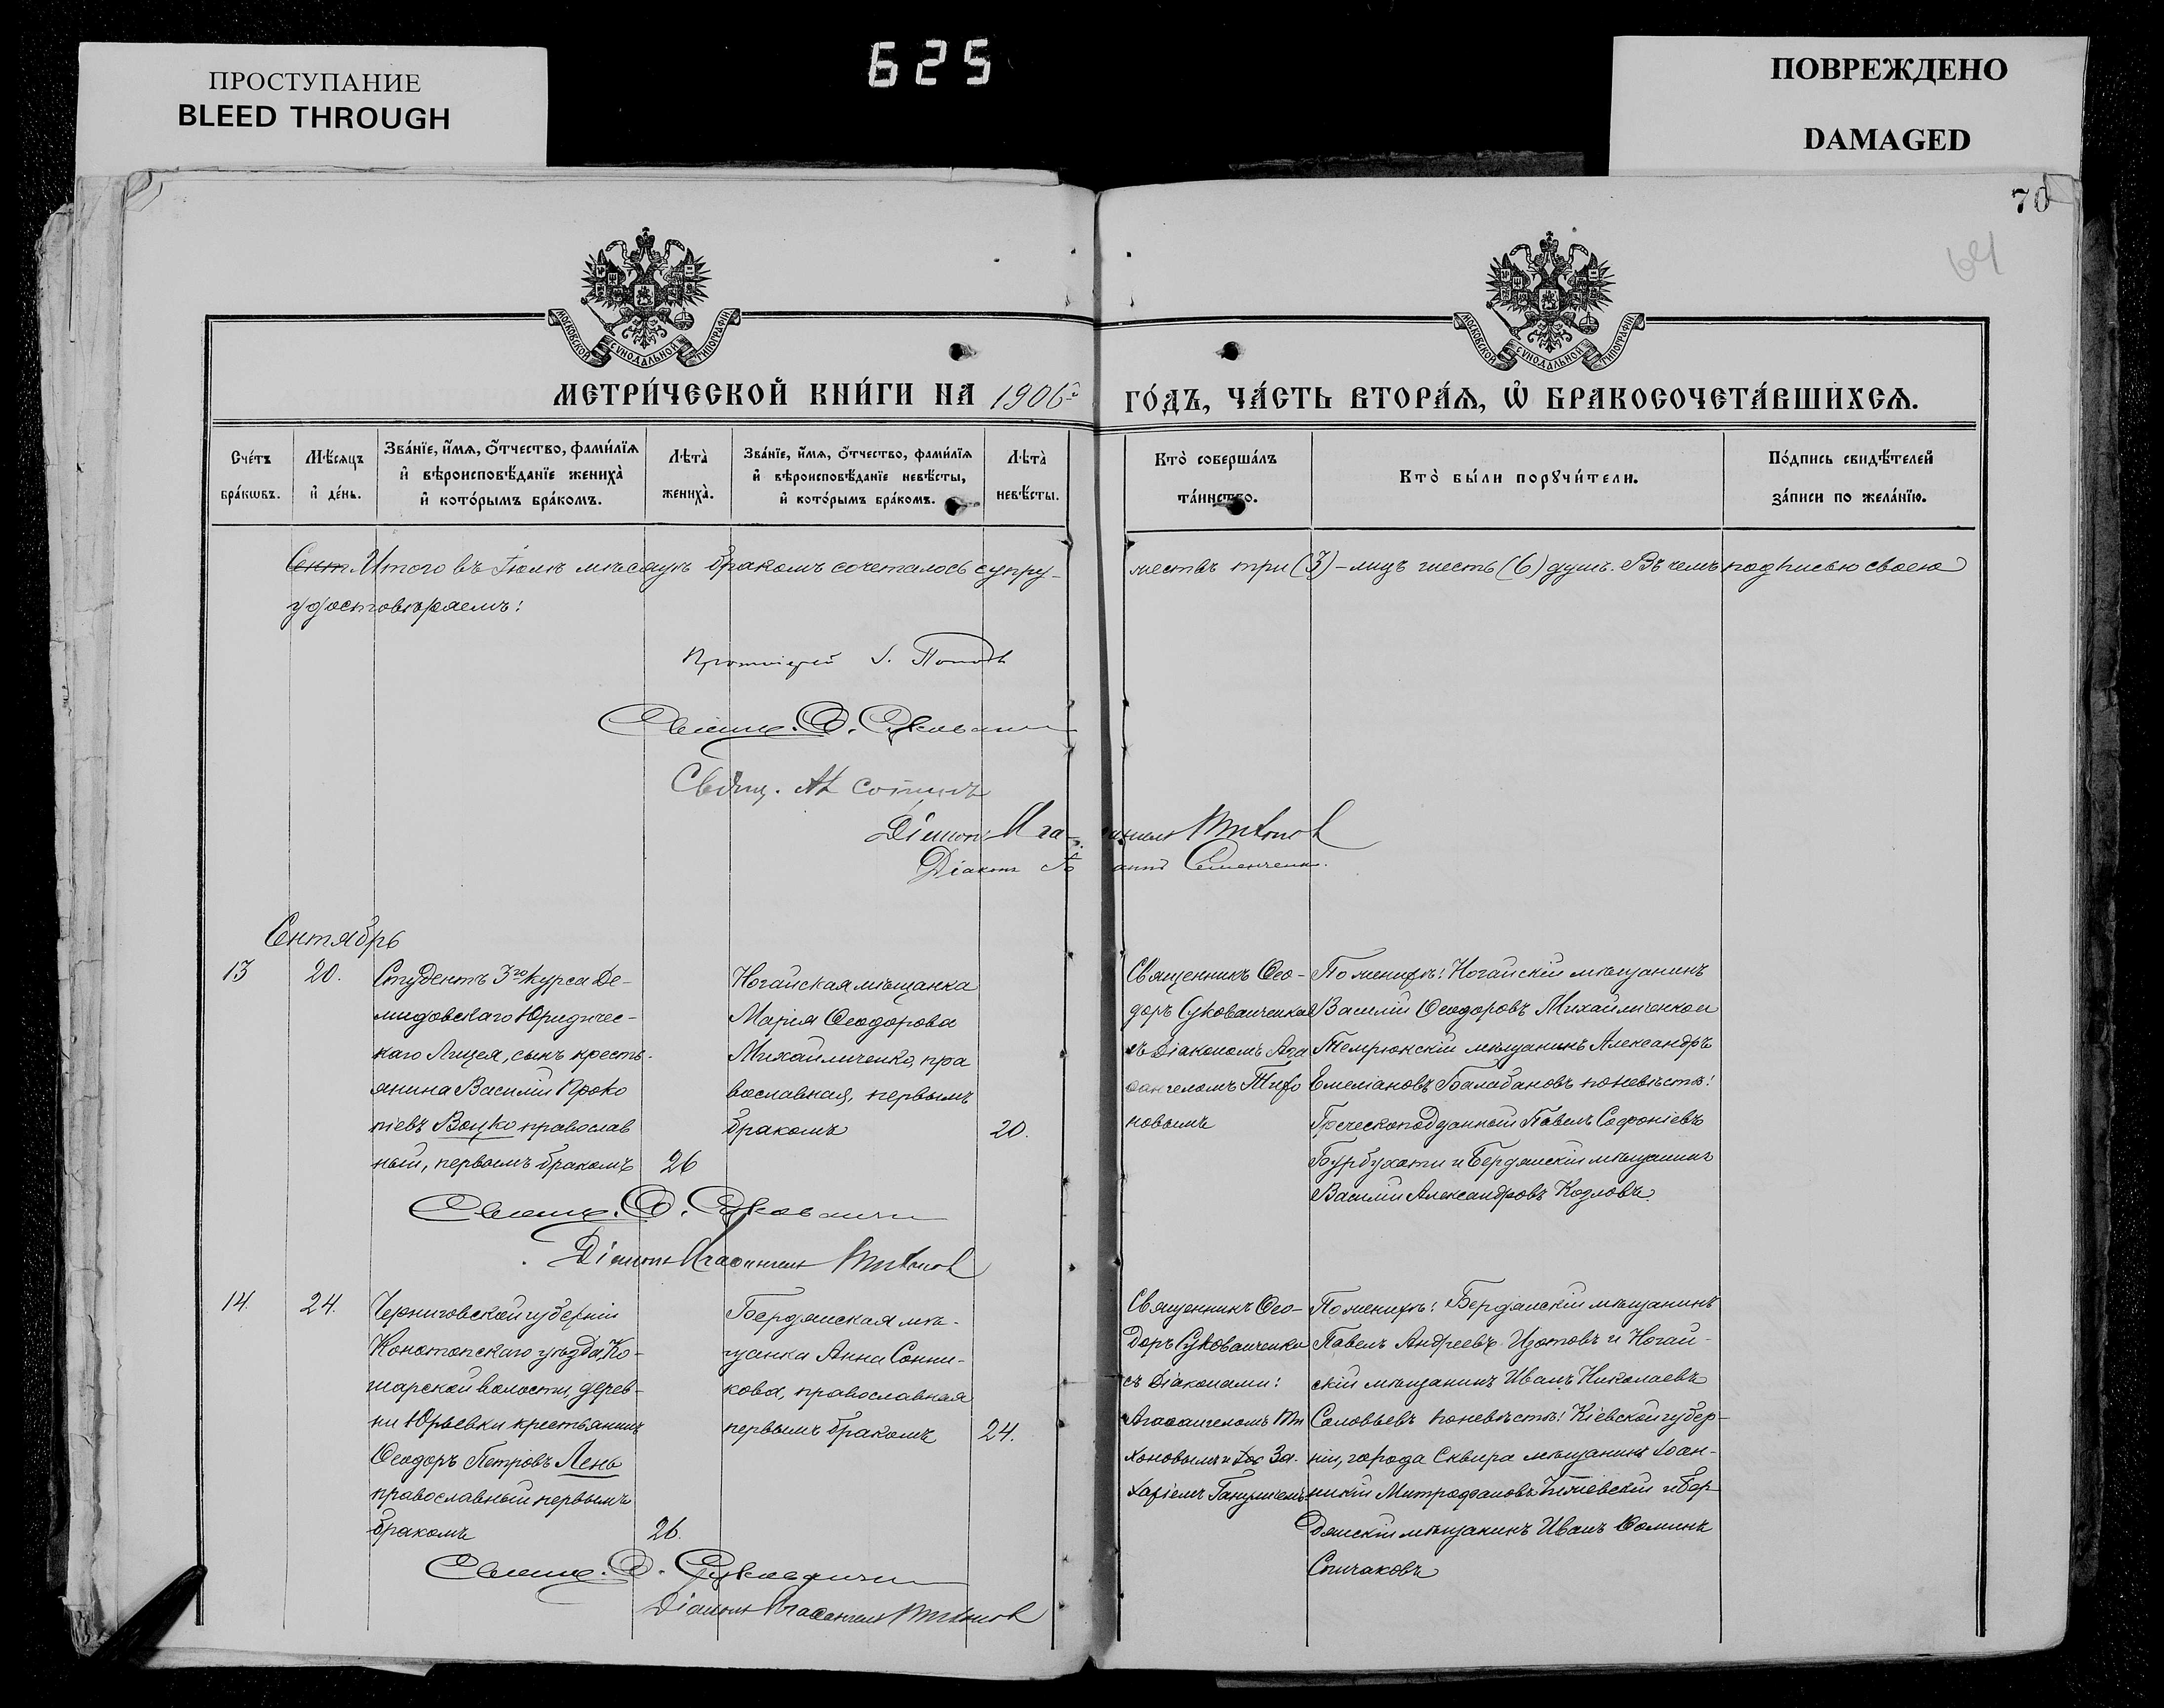 ПРОСТУПАНИЕ
BLEED THROUGH
625
ПОВРЕЖДЕНО
DAMAGED
70
64
МОСКОВСКОЙ СѴНОДАЛЬНОЙ ТИПОГРАФІИ
МОСКОВСКОЙ СѴНОДАЛЬНОЙ ТИПОГРАФІИ
МЕТРИ́ЧЕСКОЙ КНИ́ГИ НА 1906й ГО́ДЪ, ЧА́СТЬ ВТОРА́Ѧ, Ѽ БРАКОСОЧЕТА́ВШИХСѦ.
Сче́тъ бра́кѡвъ.
Мѣ́сяцъ и҆ де́нь.
Зва́нїе, и҆́мѧ, ѻ҆́тчество, фами́лїѧ
и҆ вѣроисповѣ́данїе жениха̀
и҆ кото́рымъ бра́комъ.
Лѣта̀ жениха̀.
Зва́нїе, и҆́мѧ, ѻ҆́тчество, фами́лїѧ
и҆ вѣроисповѣ́данїе невѣ́сты,
и҆ кото́рымъ бра́комъ.
Лѣта̀ невѣ́сты.
Кто̀ соверша́лъ та́инство.
Кто̀ бы́ли порꙋчи́тели.
По́дпись свидѣ́телей
за́писи по жела́нїю.
Сент Итого въ Іюлѣ мѣсяцѣ бракомъ сочеталось супру-
жествъ три (3) – лицъ шесть (6) душъ. Въ чемъ подписью своею
удостовѣряемъ:
Протоіерей І. Поповъ
Свящ. Ѳ.
Свящ.
Діаконъ Агаѳангелъ Тихонов
Діаконъ Іоаннъ Семенченко.
Сентябрь
13
20.
Студентъ 3го курса Де-
мидовскаго Юридичес-
каго Лицея, сынъ кресть-
янина Василій Проко
піевъ Воцко православ
ный, первымъ бракомъ
26
Ногайская мѣщанка
Марія Ѳеодорова
Михайличенко, пра
вославная, первымъ
бракомъ
20.
Священникъ Ѳео-
доръ Суковаиченко
съ Діакономъ Ага
ѳангеломъ Тихо
новымъ
По женихѣ: Ногайскій мѣщанинъ
Василій Ѳеодоровъ Михайличенко и
Темрюкскій мѣщанинъ Александръ
Емеліановъ Балабановъ по невѣстѣ:
Греческоподданный Павелъ Софроніевъ
Бурбухати и Бердянскій мѣщанинъ
Василій Александровъ Козловъ.
Свящ. Ѳ.
Діаконъ Агаѳангелъ Тихонов
14.
24.
Черниговской губерніи
Конотопскаго уѣзда, Ко-
шарской волости, дерев-
ни Юрьевки крестьянинъ
Ѳеодоръ Петровъ Лень
православный первымъ
бракомъ
26.
Бердянская мѣ-
щанка Анна Сонни-
кова, православная
первымъ бракомъ
24.
Священникъ Ѳео-
доръ Суковаиченко
съ Діаконами:
Агаѳангеломъ Ти
хоновымъ и За-
харіемъ
По женихѣ: Бердянскій мѣщанинъ
Павелъ Андреевъ Изотовъ и Ногай-
скій мѣщанинъ Иванъ Николаевъ
Соловьевъ по невѣстѣ: Кіевской губер-
ніи, города Сквира мѣщанинъ Іоан-
никій Митрофановъ и Бер-
дянскій мѣщанинъ Иванъ Ѳоминъ
Спичаковъ
Свящ. Ѳ.
Діаконъ Агаѳангелъ Тихонов